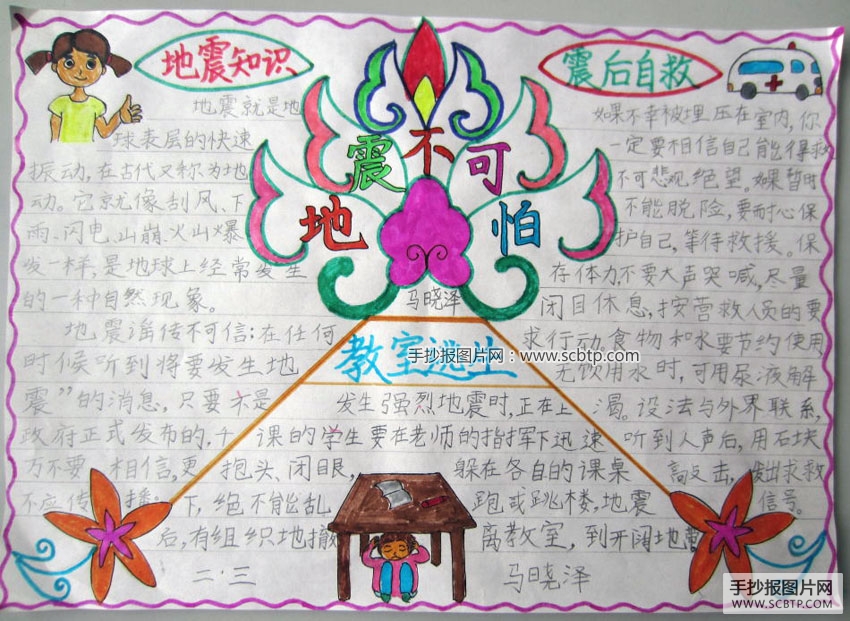 地震知识
地震就是地
球表层的快速
振动,在古代又称为地
动。它就像刮风、下
雨、闪电、山崩、火山爆
发一样,是地球上经常发生
的一种自然现象。
地震谣传不可信:在任何
时候听到将要发生地
震”的消息,只要不是
政府正式发布的,千
万不要相信,更
不应传播。
地震不可怕
马晓泽
教室逃生
手抄报图片网:www.scbtp.com
发生强烈地震时,正在上
课的学生要在老师的指挥下迅速
抱头、闭目,躲在各自的课桌
下,绝不能乱跑或跳楼,地震
后,有组织地撤离教室,到开阔地
二·三 马晓泽
震后自救
如果不幸被埋压在室内,你
一定要相信自己能得救
不可悲观绝望。如果暂时
不能脱险,要耐心保
护自己,等待救援。保
存体力不要大声哭喊,尽量
闭目休息,按营救人员的要
求行动。食物和水要节约使用
无饮用水时,可用尿液解
渴。设法与外界联系,
听到人声后,用石块
敲击,发出求救
信号。
手抄报图片网
WWW.SCBTP.COM